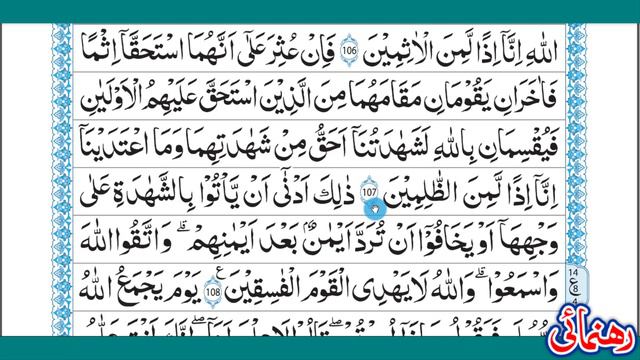 اللّٰهِ اِنَّاۤ اِذًا لَّمِنَ الْاٰثِمِیْنَ 106 فَاِنْ عُثِرَ عَلٰۤی اَنَّهُمَا اسْتَحَقَّاۤ اِثْمًا
فَاٰخَرٰنِ یَقُوْمٰنِ مَقَامَهُمَا مِنَ الَّذِیْنَ اسْتَحَقَّ عَلَیْهِمُ الْاَوْلَیٰنِ
فَیُقْسِمٰنِ بِاللّٰهِ لَشَهَادَتُنَاۤ اَحَقُّ مِنْ شَهَادَتِهِمَا وَمَا اعْتَدَیْنَاۤ
اِنَّاۤ اِذًا لَّمِنَ الظّٰلِمِیْنَ 107 ذٰلِكَ اَدْنٰۤی اَنْ یَّاْتُوْا بِالشَّهَادَةِ عَلٰی
وَجْهِهَاۤ اَوْ یَخَافُوْۤا اَنْ تُرَدَّ اَیْمٰنٌۢ بَعْدَ اَیْمٰنِهِمْ ؕ وَاتَّقُوا اللّٰهَ
وَاسْمَعُوْا ؕ وَاللّٰهُ لَا یَهْدِی الْقَوْمَ الْفٰسِقِیْنَ ع 108 یَوْمَ یَجْمَعُ اللّٰهُ
14
ع
8
4
رهنمائی